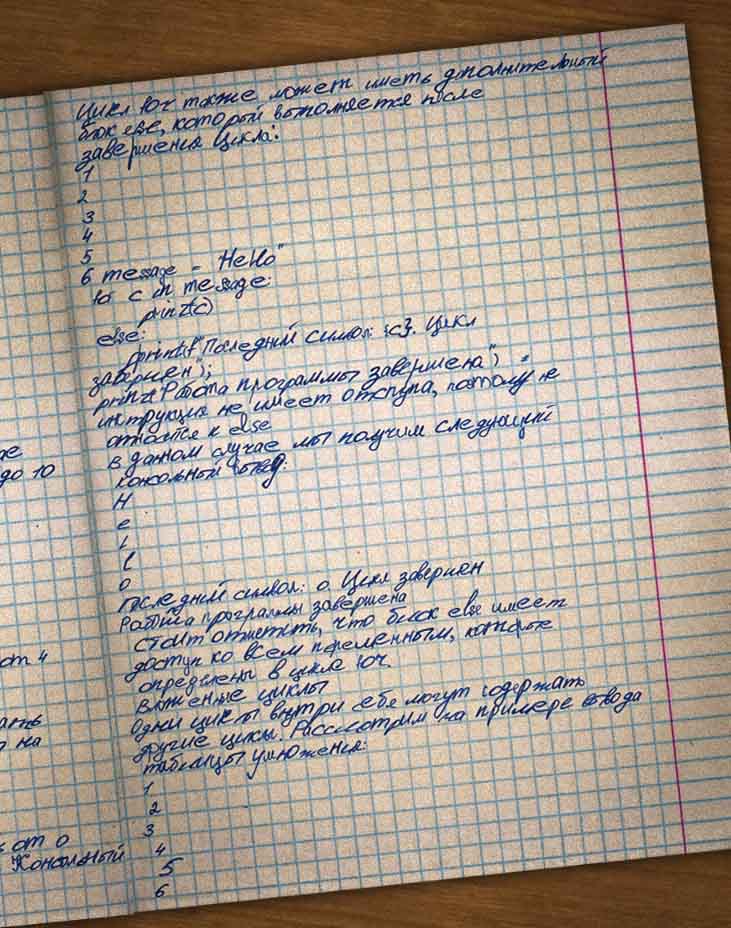 Цикл юч также может иметь дополнительный
блок else, который выполняется после
завершения цикла:
1
2
3
4
5
6 message = "Hello"
for c in message:
print(c)
else:
print(f"Последний символ: {c}. Цикл
завершен");
print("Работа программы завершена") -
инструкция не имеет отступа, потому не
относится к else
в данном случае мы получим следующий
консольный вывод:
H
e
l
l
o
Последний символ: o Цикл завершен
Работа программы завершена
стоит отметить, что блок else имеет
доступ ко всем переменным, которые
определены в цикле юч
Вложенные циклы
Одни циклы внутри себя могут содержать
другие циклы. Рассмотрим на примере вывода
таблицы умножения:
1
2
3
4
5
6
до 10
от 4
на
от 0
Консольный